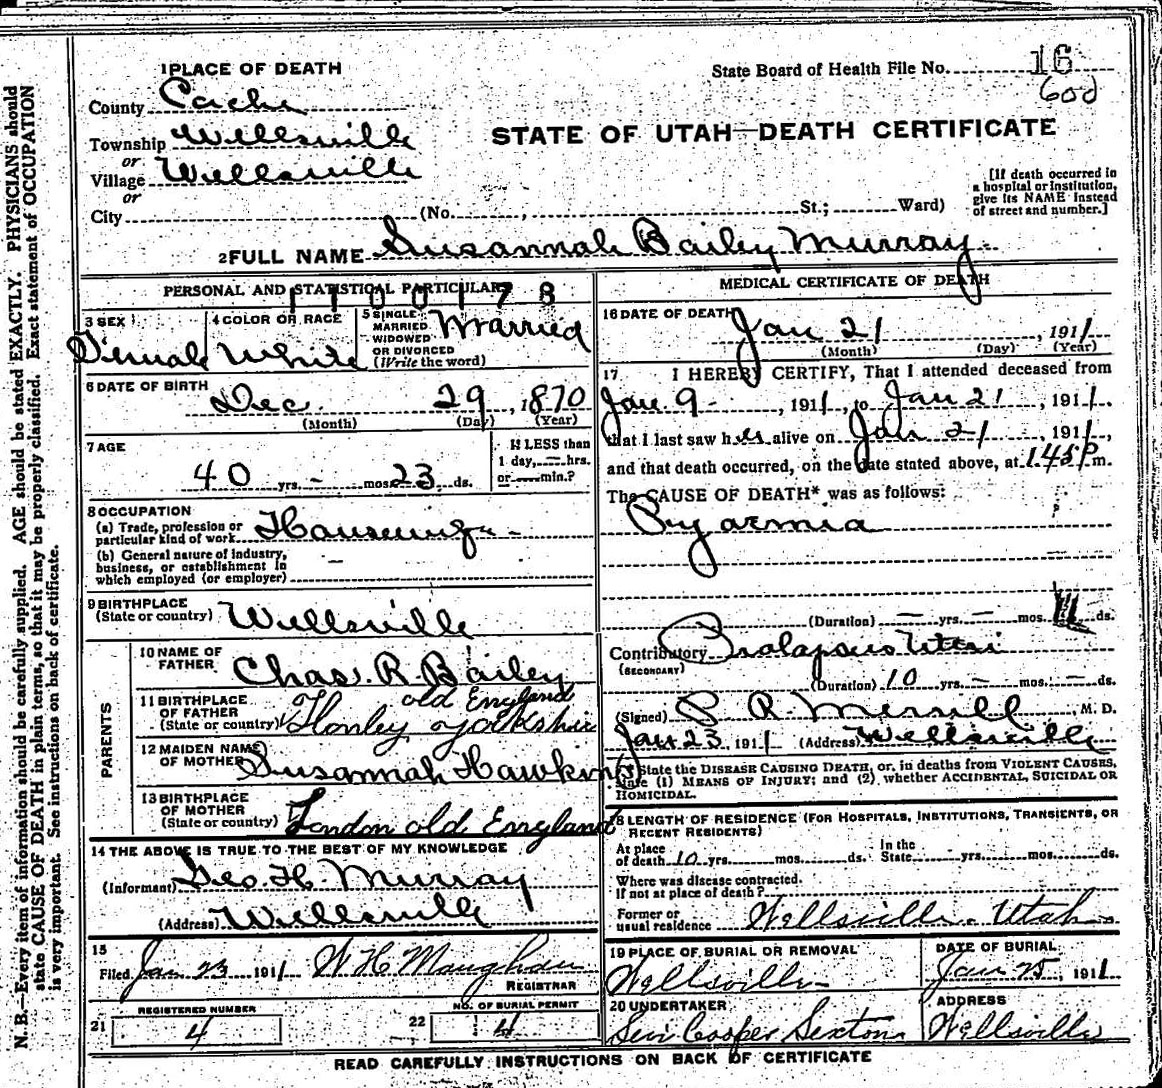 N. B.—Every item of information should be carefully supplied. AGE should be stated EXACTLY. PHYSICIANS should
state CAUSE OF DEATH in plain terms, so that it may be properly classified. Exact statement of OCCUPATION
is very important. See instructions on back of certificate.
1 PLACE OF DEATH
County Cache
Township Wellsville
or
Village Wellsville
or
City (No. , St.; Ward)
State Board of Health File No. 16
600
STATE OF UTAH—DEATH CERTIFICATE
[If death occurred in
a hospital or institution,
give its NAME instead
of street and number.]
2 FULL NAME Susannah Bailey Murray
PERSONAL AND STATISTICAL PARTICULARS
1100178
3 SEX Female
4 COLOR OR RACE White
5 SINGLE
MARRIED
WIDOWED
OR DIVORCED
(Write the word) Married
6 DATE OF BIRTH
Dec. 29, 1870
(Month) (Day) (Year)
7 AGE
40 yrs. - mos. 23 ds.
If LESS than
1 day, — hrs.
or — min.?
8 OCCUPATION
(a) Trade, profession or
particular kind of work Housewife
(b) General nature of industry,
business, or establishment in
which employed (or employer) —
9 BIRTHPLACE
(State or country) Wellsville
PARENTS
10 NAME OF
FATHER Chas. R. Bailey
11 BIRTHPLACE
OF FATHER
(State or country) Honley Yorkshire old England
12 MAIDEN NAME
OF MOTHER Susannah Hawkins
13 BIRTHPLACE
OF MOTHER
(State or country) London old England
14 THE ABOVE IS TRUE TO THE BEST OF MY KNOWLEDGE
(Informant) Geo. H. Murray
(Address) Wellsville
15
Filed Jan 23 1911 W H Maughan
REGISTRAR
21 REGISTERED NUMBER
4
22 NO. OF BURIAL PERMIT
4
MEDICAL CERTIFICATE OF DEATH
16 DATE OF DEATH
Jan 21, 1911
(Month) (Day) (Year)
17 I HEREBY CERTIFY, That I attended deceased from
Jan. 9, 1911, to Jan 21, 1911.
that I last saw her alive on Jan 21, 1911,
and that death occurred, on the date stated above, at 1.45 P m.
The CAUSE OF DEATH* was as follows:
Pyaemia
(Duration) — yrs. — mos. ds.
Contributory Prolapsus Uteri
(SECONDARY)
(Duration) 10 yrs. — mos. — ds.
(Signed) Merrill, M. D.
Jan 23, 1911 (Address) Wellsville
* State the DISEASE CAUSING DEATH, or, in deaths from VIOLENT CAUSES,
state (1) MEANS OF INJURY; and (2) whether ACCIDENTAL, SUICIDAL OR
HOMICIDAL.
18 LENGTH OF RESIDENCE (FOR HOSPITALS, INSTITUTIONS, TRANSIENTS, OR
RECENT RESIDENTS)
At place
of death 10 yrs. mos. ds. In the
State yrs. mos. ds.
Where was disease contracted.
If not at place of death?
Former or
usual residence Wellsville. Utah.
19 PLACE OF BURIAL OR REMOVAL
Wellsville
DATE OF BURIAL
Jan 25, 1911
20 UNDERTAKER
Levi Cooper Sexton
ADDRESS
Wellsville
READ CAREFULLY INSTRUCTIONS ON BACK OF CERTIFICATE